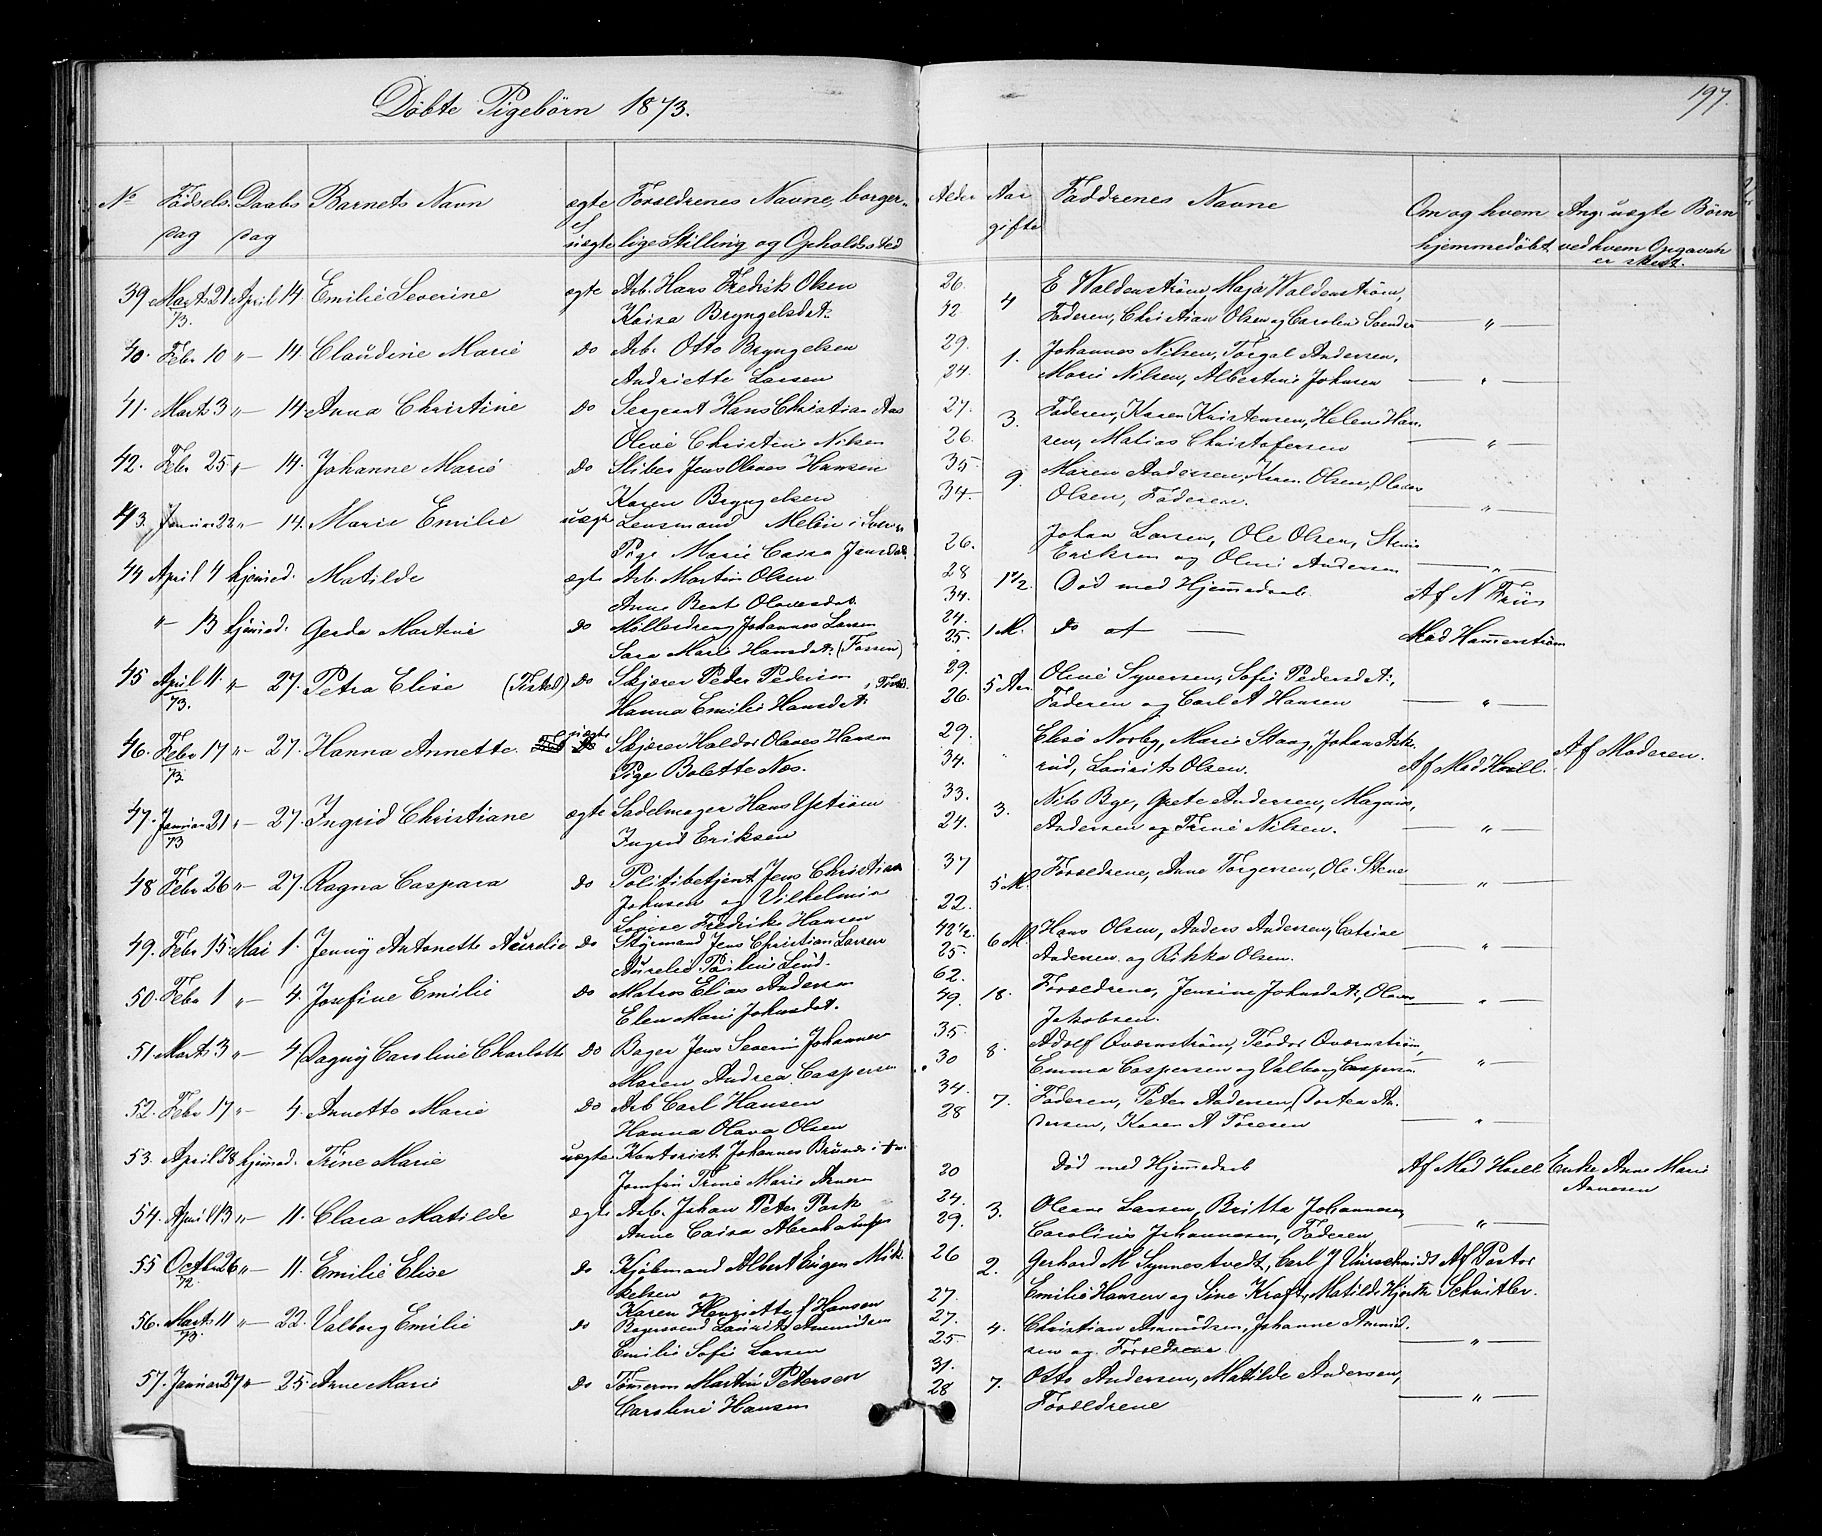 Døbte Pigebørn 1873.
197.
No Fødsels Daabs Barnets Navn ægte Forældrenes Navne, borger- Alder Aar Faddrenes Navne Om og hvem Ang. uægte Børn
dag dag el. uægte lige Stilling og Opholdssted gifte hjemmedøbt ved hvem Opgaven er skeet.
39 Marts 21 April 14. Emilie Severine ægte Arb. Hans Fredrik Olsen 26. 4 E Waldenstrøm, Maja Waldenstrøm,
73. Kaisa Bryngelsdt. 42 Faderen, Christian Olsen og Caroline — " —
40. Febr 10 " — 14. Claudine Marie do Arb. Otto Bryngelsen 29. 1. Johannes Nilsen, Torgal Andersen,
Andriette Larsen 24. Marie Nilsen, Albertine Johnsen — " —
41. Marts 3 " — 14. Anna Christine do Sergeant Hans Christian Aas 27. 3. Faderen, Karen Kristensen, Helene Han-
Olive Christine Nilsen 26. sen, Matias Christofersen — " —
42. Febr 25 " — 14. Johanne Marie do Sliber Jens Olaves Hansen 35 9. Maren Andersen, Karen Olsen, Olaves
Karen Bryngelsen 34. Olsen, Faderen. — " —
43. Januar 22 " — 14. Marie Emilie uægte Lensmand Melin i Sverige Johan Larsen, Ole Olsen, Stine
Pige Marie Caisa Jansdat. 26. Eriksen og Oline Andersen — " —
44 April 4 hjemmed. Matilde ægte Arb. Martin Olsen 28 1 1/2. Død med Hjemmedaab. Af N Friis
Anne Beate Olavesdat. 34.
" — 13 hjemmed. Gerda Martine do Møllerdreng Johannes Larsen 24. 1 M. do af — Mad Hammerstrøm
Sara Marie Hansdt. (Fossen) 25.
45 April 11. " — 27. Petra Elise (Tisted) do Skjærer Peder Pedersen 29. 5 Aar Olive Syversen, Sofie Pedersdt.,
73. Hanna Emilie Hansdt. 26. Faderen og Carl A Hansen — " —
46. Febr 17 " — 27. Hanna Annette. uægte Skjærer Haldor Olaves Hansen 29. Elise Norby, Marie Staag, Johan Ask-
73 Pige Bolette Næs. 34. " rud, Laurits Olsen. Af Mad Hvill. Af Moderen.
47. Januar 21 " — 27. Ingrid Christiane ægte Sadelmager Hans Ystrøm 33. 3. Nils Bye, Grete Andersen, Magnus
73 Ingrid Eriksen 24. Andersen og Trine Nilsen. — " —
48 Febr 26 " — 27. Ragna Caspara do Politibetjent Jens Christian 37 5 M. Forældrene, Anne Torgersen, Ole Stene
Johnsen og Vilhelmine — " —
Lovise Fredrikke Hansen 22.
49. Febr 15. Mai 1. Jenny Antonette Aurelie do Styrmand Jens Christian Larsen 42 1/2. 6 M. Hans Olsen, Anders Andersen, Catrine
Aurelie Pauline Lind. 25. Andersen og Rikka Olsen. — " —
50. Febr 1 " — 4. Josefine Emilie do Matros Elias Andersen 62. 18. Forældrene, Jensine Johnsdt., Olaves
Elen Marie Johnsdat. 49. Jakobsen. — " —
51. Marts 3 " — 4 Dagny Caroline Charlotte do Bager Jens Severin Johannesen 35. 8. Adolf Qværnstrøm, Teodor Qværnstrøm,
Maren Andrea Caspersen 30 Emma Caspersen og Valborg Caspersen — " —
52. Febr 17 " — 4. Annette Marie do Arb Carl Hansen 34. 7. Faderen, Peter Andersen, Dortea An-
Hanna Olava Olsen 28 dersen, Karen A Toresen — " —
53. April 28 hjemmed. Trine Marie uægte Kontorist Johannes Brunes Død med Hjemmedaab Af Mad Hvill. Enke Anne Marie
Jomfru Trine Marie Arnesen 20 Arnesen
54. April 13 " — 11. Clara Matilde ægte Arb. Johan Peter Park 24. 3. Olerne Larsen, Britta Johannesen,
Anne Caisa Abrahamsen 29. Carolius Johannesen, Faderen — " —
55 Octbr 26 " — 11. Emilie Elise do Kjøbmand Albert Eugen Mik- 26 2. Gerhard M Synnestvedt, Carl J Unrschmidt Af Pastor
72. kelsen og Karen Henriette f Hansen 27. Emilie Hansen og Sine Kraft, Matilde Hjorth Schnitler.
56. Marts 11 " — 22. Valborg Emilie do Bøgersvend Laurits Amundsen 27. 4. Christian Amundsen, Johanne Amund-
73. Emilie Sofie Larsen 25 sen og Forældrene — " —
57. Januar 27 " — 25. Anne Marie do Tømmerm Martin Petersen 31. 7. Otto Andersen, Matilde Andersen,
Caroline Hansen 28 Forældrene — " —